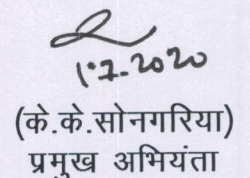 1.7.2020
(के.के.सोनगरिया)
प्रमुख अभियंता